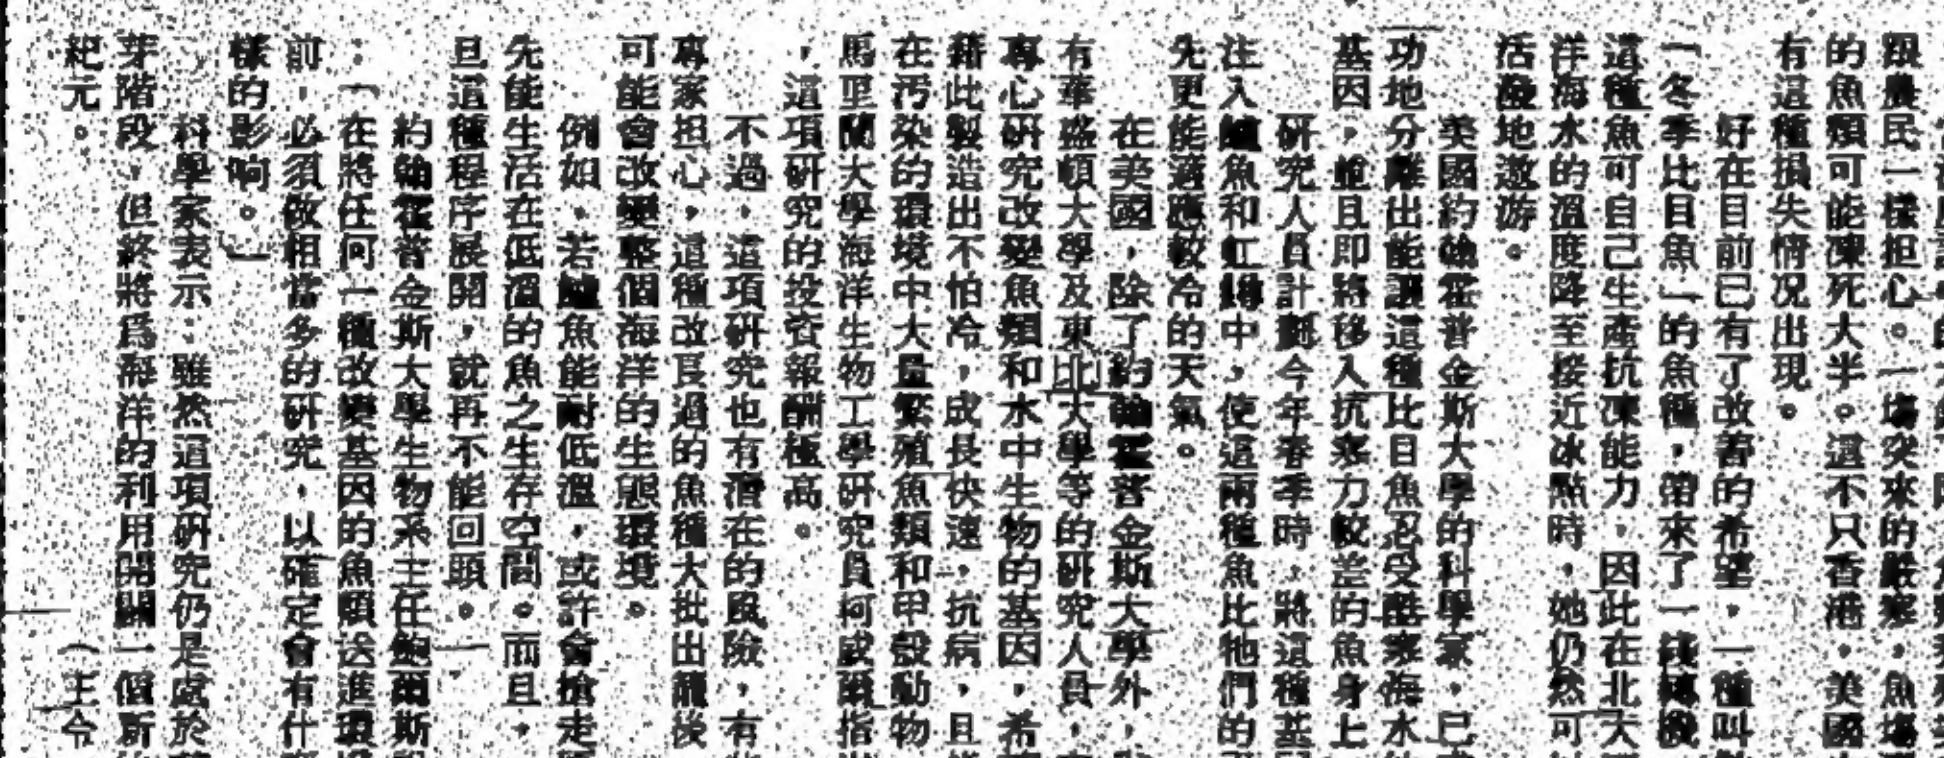 跟農民一樣担心。一塲突來的嚴寒，魚塲
的魚類可能凍死大半。這不只香港，美國
有這種損失情况出現。
好在目前已有了改善的希望，一種叫
「冬季比目魚」的魚種，帶來了一綫轉機
這種魚可自己生產抗凍能力，因此在北大
洋海水的溫度降至接近冰點時，她仍然可
活潑地遨游。
美國約翰霍普金斯大學的科學家，已
功地分離出能讓這種比目魚忍受酷寒海水
基因，並且即將移入抗寒力較差的魚身上
研究人員計劃今年春季時，將這種基
注入鱸魚和虹鱒中，使這兩種魚比牠們的
先更能適應較冷的天氣。
在美國，除了約翰霍普金斯大學外，
有華盛頓大學及東北大學等的研究人員，
專心研究改變魚類和水中生物的基因，希
藉此製造出不怕冷，成長快速，抗病，且
在汚染的環境中大量繁殖魚類和甲殼動物
馬里蘭大學海洋生物工學研究員柯威爾指
，這項研究的投資報酬極高。
不過，這項研究也有潛在的風險，有
專家担心，這種改良過的魚種大批出籠後
可能會改變整個海洋的生態環境。
例如，若鱸魚能耐低溫，或許會搶走
先能生活在低溫的魚之生存空間。而且，
旦這種程序展開，就再不能回頭。
約翰霍普金斯大學生物系主任鮑爾斯
：「在將任何一種改變基因的魚類送進環
前，必須做相當多的研究，以確定會有什
樣的影响。」
科學家表示：雖然這項研究仍是處於
芽階段，但終將爲海洋的利用開闢一個新
紀元。（王令